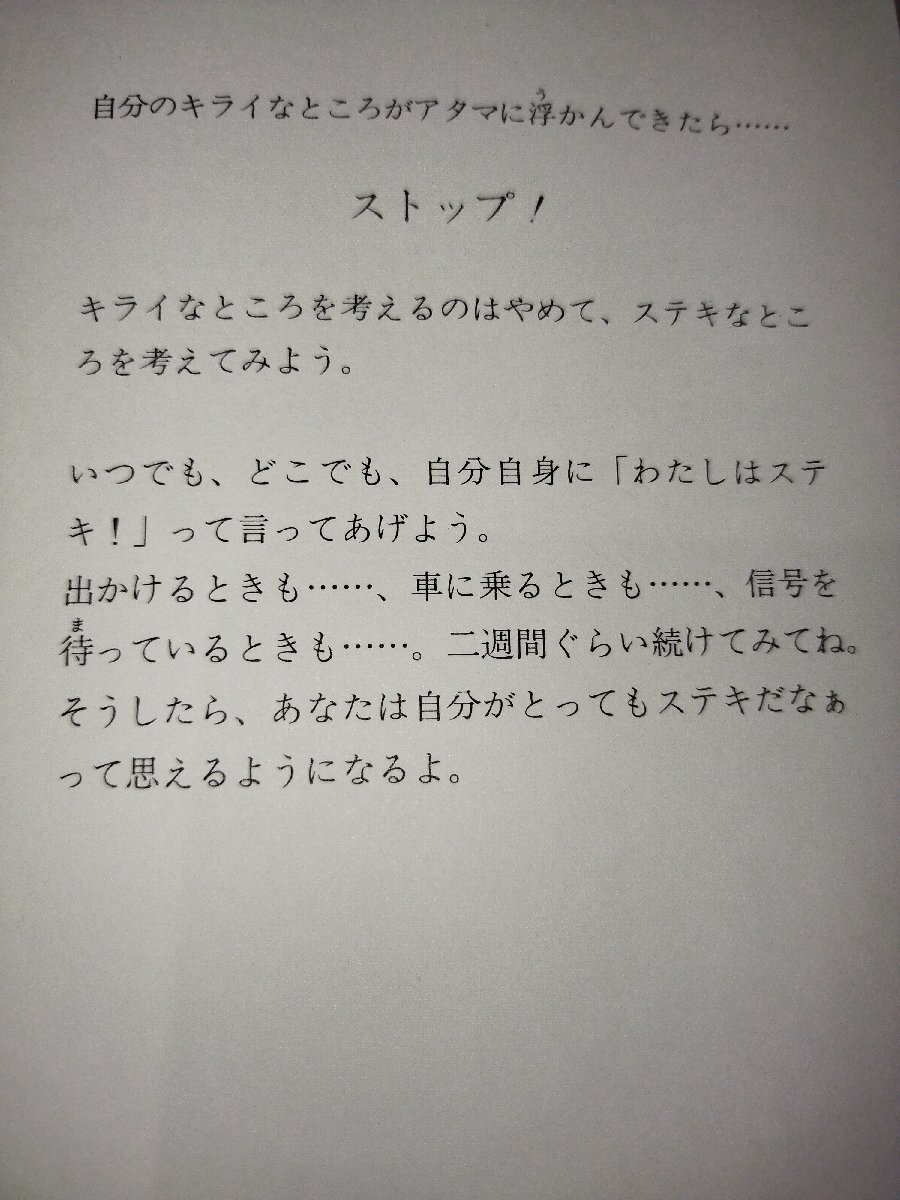 自分のキライなところがアタマに浮かんできたら……
ストップ！
キライなところを考えるのはやめて、ステキなとこ
ろを考えてみよう。
いつでも、どこでも、自分自身に「わたしはステ
キ！」って言ってあげよう。
出かけるときも……、車に乗るときも……、信号を
待っているときも……。二週間ぐらい続けてみてね。
そうしたら、あなたは自分がとってもステキだなぁ
って思えるようになるよ。